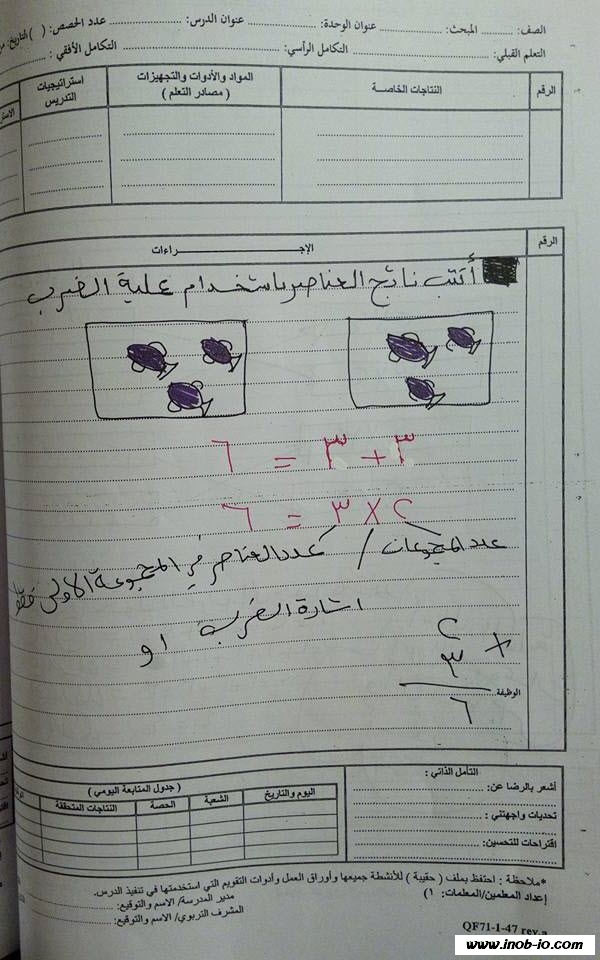 الصف: ........ المبحث: ................ عنوان الوحدة: ................ عنوان الدرس: ................ عدد الحصص: ( ) التاريخ: من
التعلم القبلي: ................ التكامل الرأسي: ................ التكامل الأفقي:
الرقم النتاجات الخاصـة المواد والأدوات والتجهيزات استراتيجيات
( مصادر التعلم ) التدريس
الرقم الإجـــــــراءات
أكتب ناتج العناصر باستخدام عملية الضرب
٣ + ٣ = ٦
٢ × ٣ = ٦
عدد المجموعات / عدد العناصر في المجموعة الأولى فقط
اشارة الضرب او
٢
× ٣
٦
الوظيفة
التأمل الذاتي :
أشعر بالرضا عن:
تحديات واجهتني :
اقتراحات للتحسين:
( جدول المتابعة اليومي )
اليوم والتاريخ الشعبة الحصة النتاجات المتحققة
*ملاحظة : احتفظ بملف ( حقيبة ) للأنشطة جميعها وأوراق العمل وأدوات التقويم التي استخدمتها في تنفيذ الدرس.
إعداد المعلمين/المعلمات: ١)
مدير المدرسة/ الاسم والتوقيع:
المشرف التربوي/ الاسم والتوقيع:
QF71-1-47 rev.a
www.inob-io.com